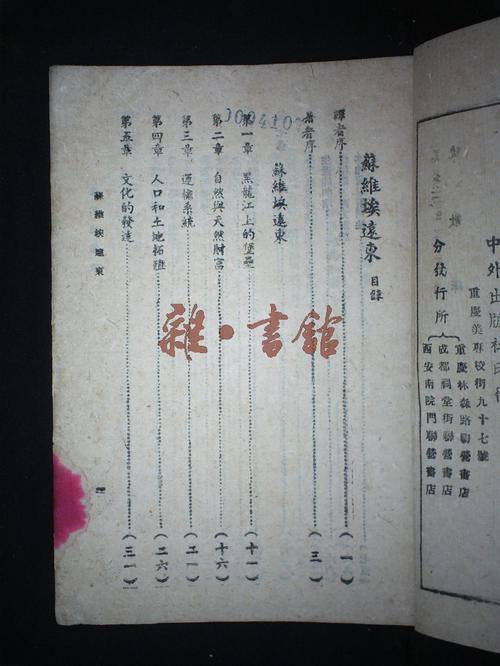 中外出版社印行
重慶美專校街九十七號
分發行所
重慶林森路聯營書店
成都祠堂街聯營書店
西安南院門聯營書店
蘇維埃遠東 目錄
譯者序……(一)
著者序……(三)
蘇維埃遠東
第一章 黑龍江上的堡壘……(十一)
第二章 自然與天然財富……(十六)
第三章 運輸系統……(二一)
第四章 人口和土地拓殖……(二六)
第五章 文化的發達……(三一)
蘇維埃遠東
雜·書館